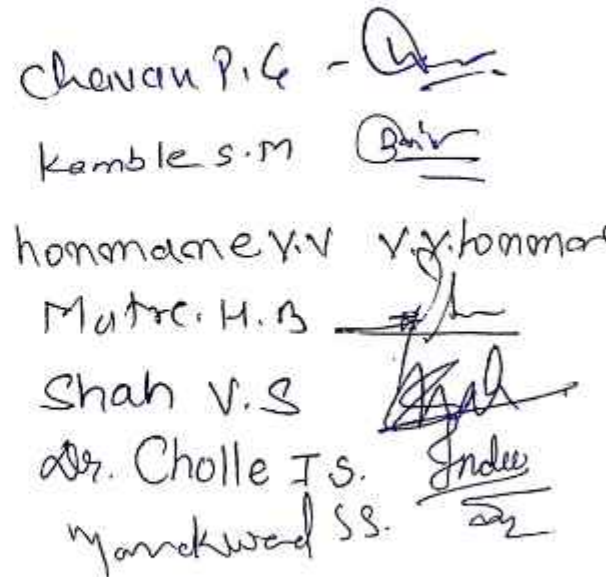 Chavan P.G -
Kamble S.M
honmane V.V V.V.honmane
Matre. H.B
Shah V.S Shah
Dr. Cholle I S. Indu
Mankwad SS.